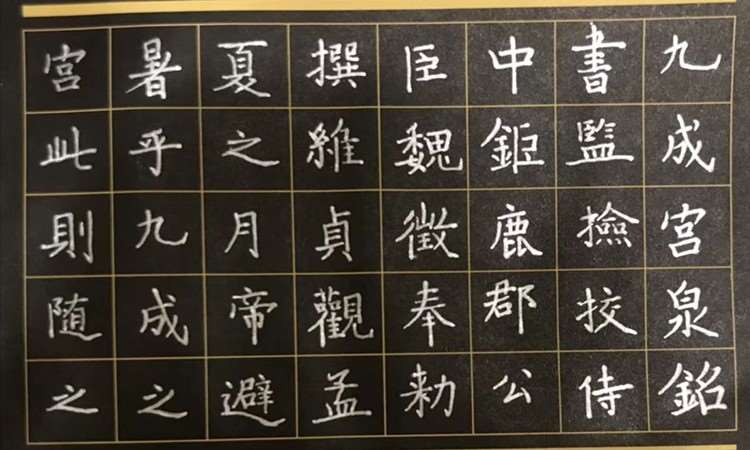 九成宫泉銘
書監撿挍侍
中鉅鹿郡公
臣魏徵奉勑
撰維貞觀孟
夏之月帝避
暑乎九成之
宫此則随之